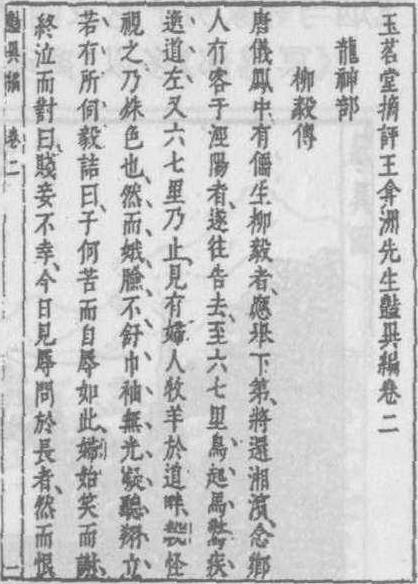 玉茗堂摘評王弇洲先生豔異編卷二
龍神部
柳毅傳
唐儀鳳中有儒生柳毅者、應舉下第、將還湘濱、念鄉
人有客于涇陽者、遂往告去、至六七里、鳥起馬驚、疾
逸道左、又六七里乃止、見有婦人牧羊於道畔、毅怪
視之、乃姝色也、然而蛾臉不舒、巾袖無光、凝聽翔立、
若有所伺、毅詰曰、子何苦而自辱如此、婦始笑而謝、
終泣而對曰、賤妾不幸、今日見辱問於長者、然而恨
豔異編 卷二 一